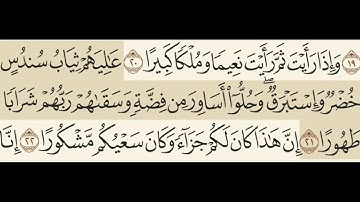 ١٩ وَإِذَا رَأَيْتَ ثَمَّ رَأَيْتَ نَعِيمًا وَمُلْكًا كَبِيرًا ٢٠ عَٰلِيَهُمْ ثِيَابُ سُندُسٍ
خُضْرٌ وَإِسْتَبْرَقٌ ۖ وَحُلُّوٓا۟ أَسَاوِرَ مِن فِضَّةٍ وَسَقَىٰهُمْ رَبُّهُمْ شَرَابًا
طَهُورًا ٢١ إِنَّ هَٰذَا كَانَ لَكُمْ جَزَآءً وَكَانَ سَعْيُكُم مَّشْكُورًا ٢٢ إِنَّا